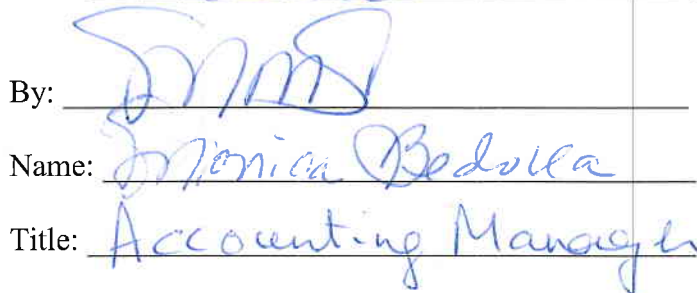 By:
Name: Monica Bedolla
Title: Accounting Manager